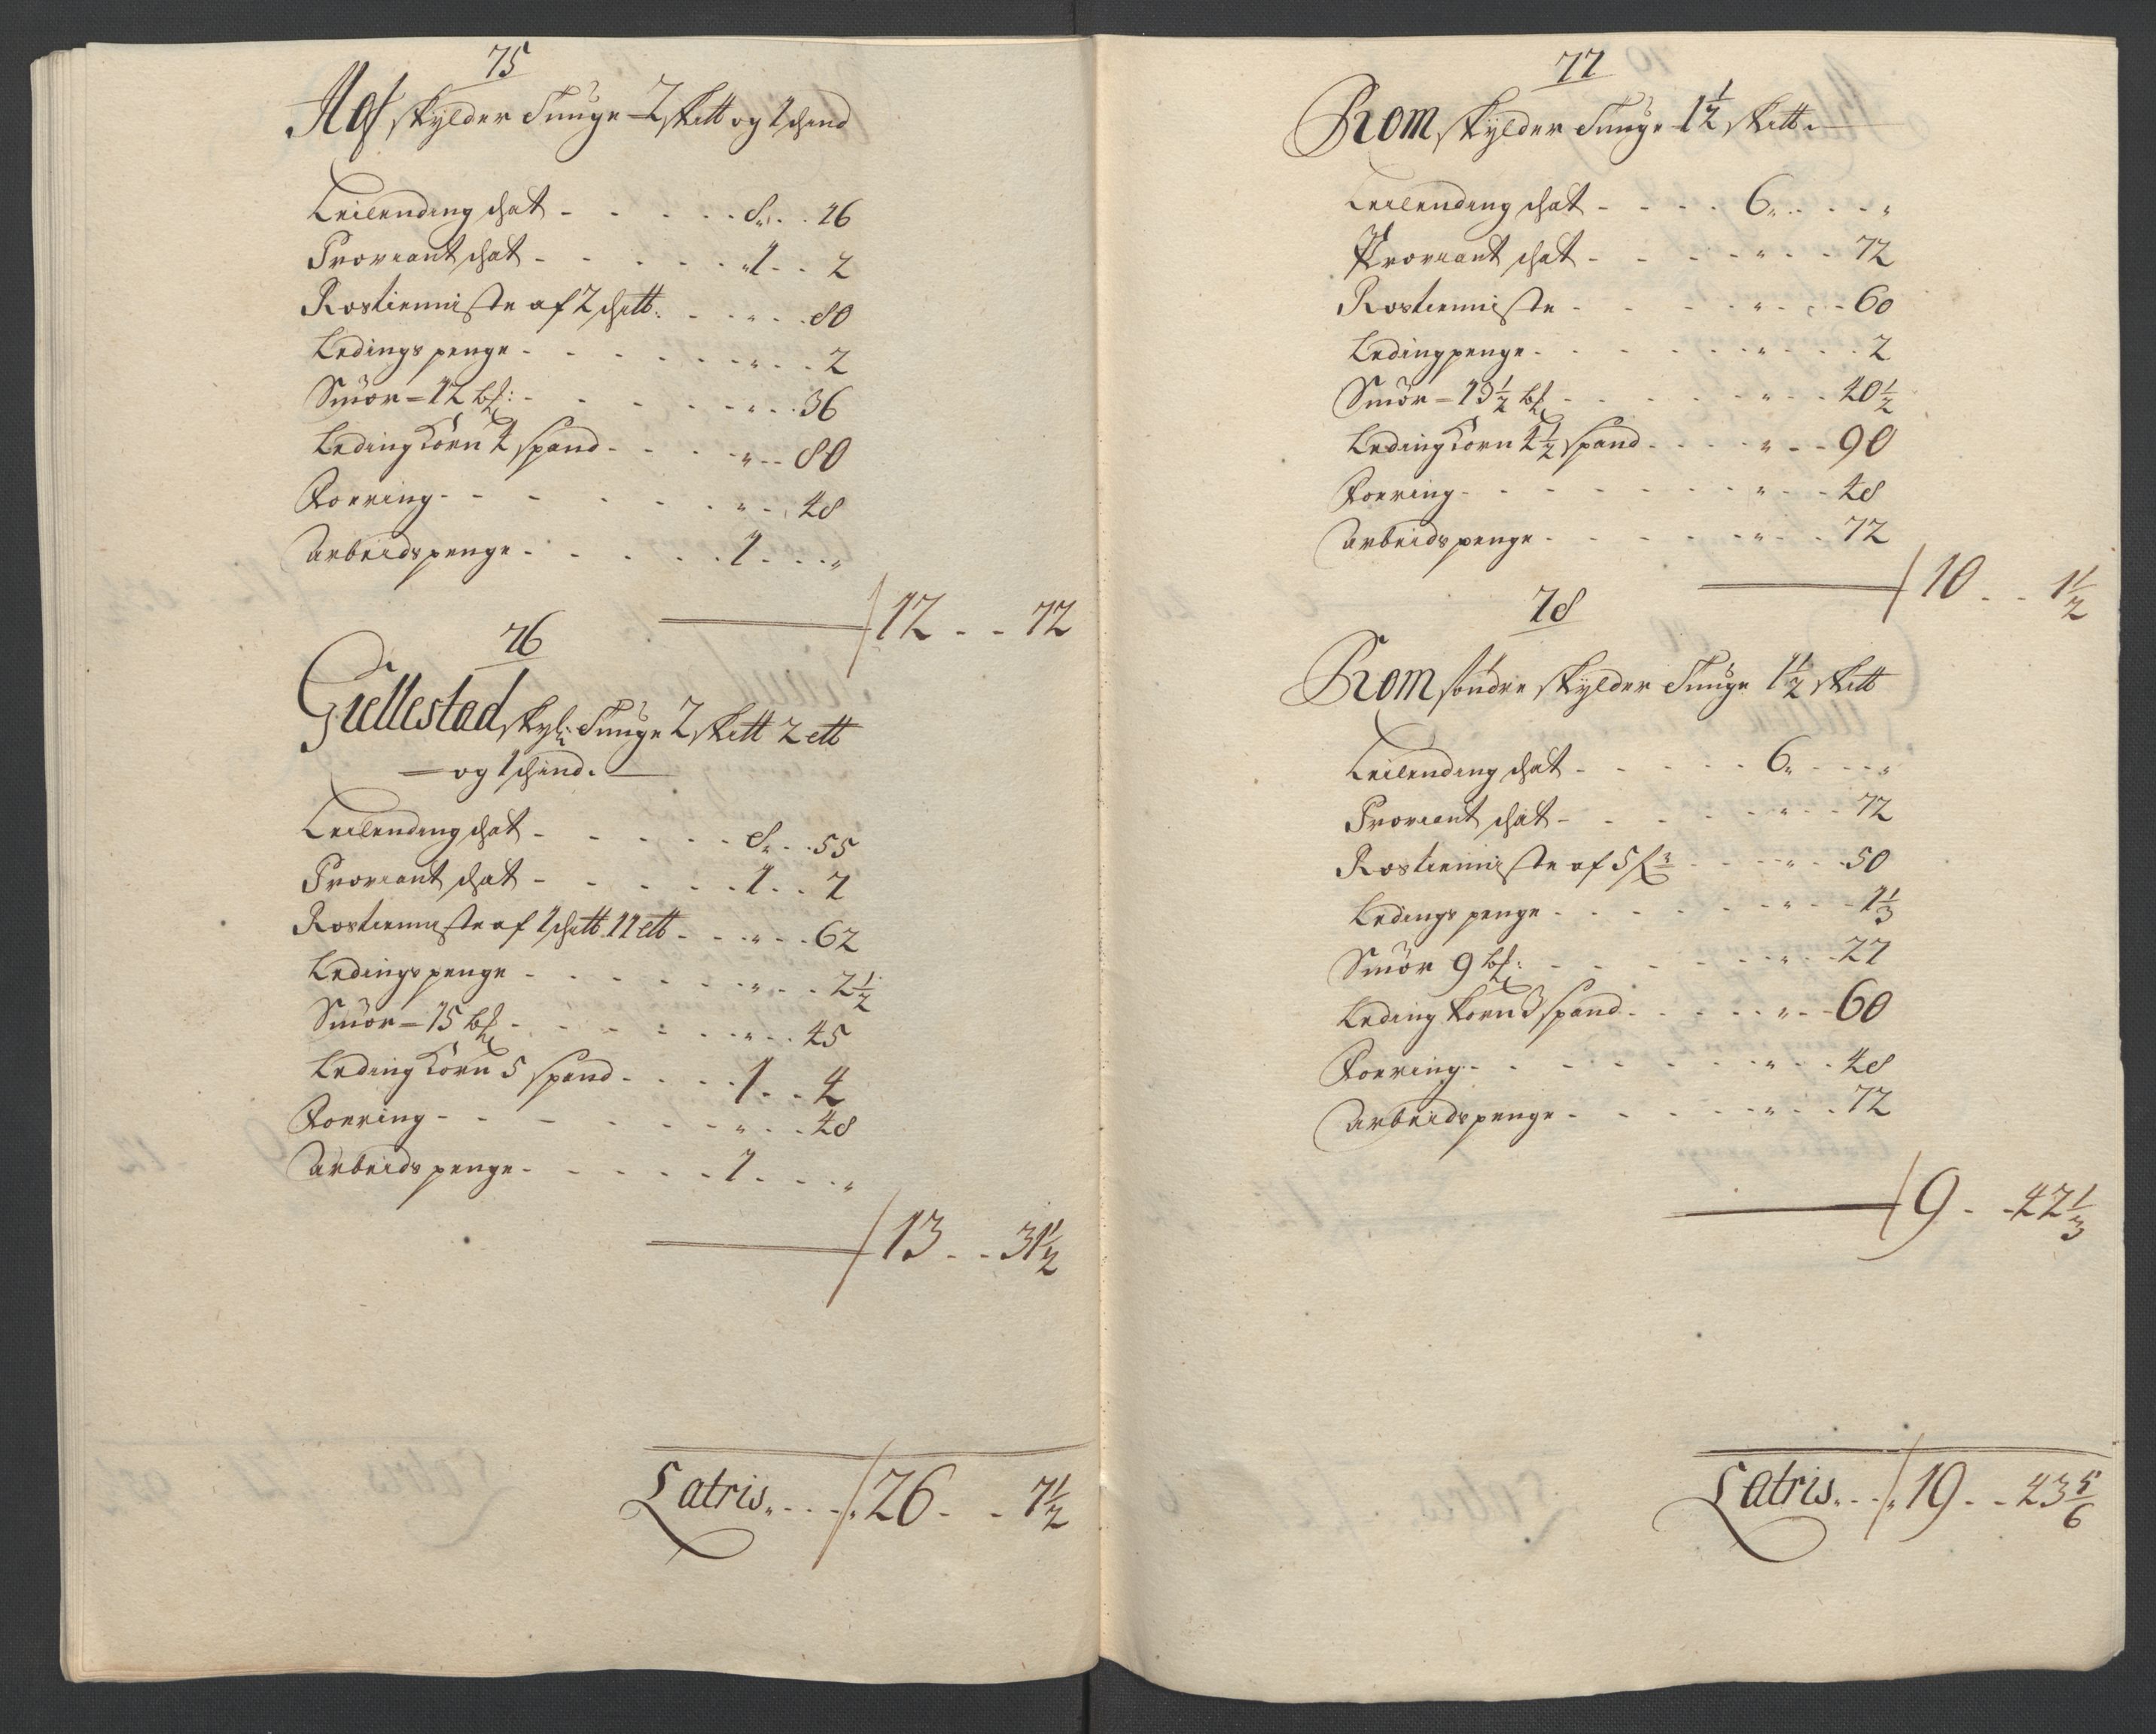 75
Hof skylder Aunge 2 skett og 1 schind
Leilending schat - - - - - 8 - - 16
Proviant schat - - - - - 1 - - 2
Rostienniste af 2 schett: - - - " - - 80
Ledings penge - - - - - " - - 2
Smör = 12 bſ: - - - - - " - - 36
Leding Korn 4 spand - - - " - - 80
Foering - - - - - " - - 48
Arbeids penge - - - - - 1 - - "
12 - - 72
76
Giellestad skyl: Aunge 2 skett 2 ett
og 1 schind.
Leilending schat - - - - - 8 - - 55
Proviant schat - - - - - 1 - - 7
Rostienniste af 1 schett 11 ett - - " - - 62
Ledings penge - - - - - " - - 2½
Smör = 15 bſ - - - - - " - - 45
Leding Korn 5 spand - - - - 1 - - 4
Foering - - - - - " - - 48
Arbeids penge - - - - - 1 - - "
13 - - 31½
Latris - - - 26 - - 7½
77
Rom skylder Aunge 1½ skett.
Leilending schat - - - - 6 - - "
Proviant schat - - - - " - - 72
Rostienniste - - - - " - - 60
Leding penge - - - - " - - 2
Smör = 13½ bſ - - - - " - - 40½
Leding Korn 4½ spand - - - " - - 90
Foering - - - - - " - - 48
Arbeids penge - - - - " - - 72
10 - - 1½
78
Rom söndre skylder Aunge 1½ skett
Leilending schat - - - - - 6 - - "
Proviant schat - - - - - " - - 72
Rostienniste af 5 - - - " - - 50
Ledings penge - - - - - " - - 1⅓
Smör 9 bſ: - - - - - " - - 27
Leding Korn 3 spand - - - - " - - 60
Foering - - - - - " - - 48
Arbeids penge - - - - " - - 72
9 - - 42⅓
Latris - - - 19 - - 43 5/6